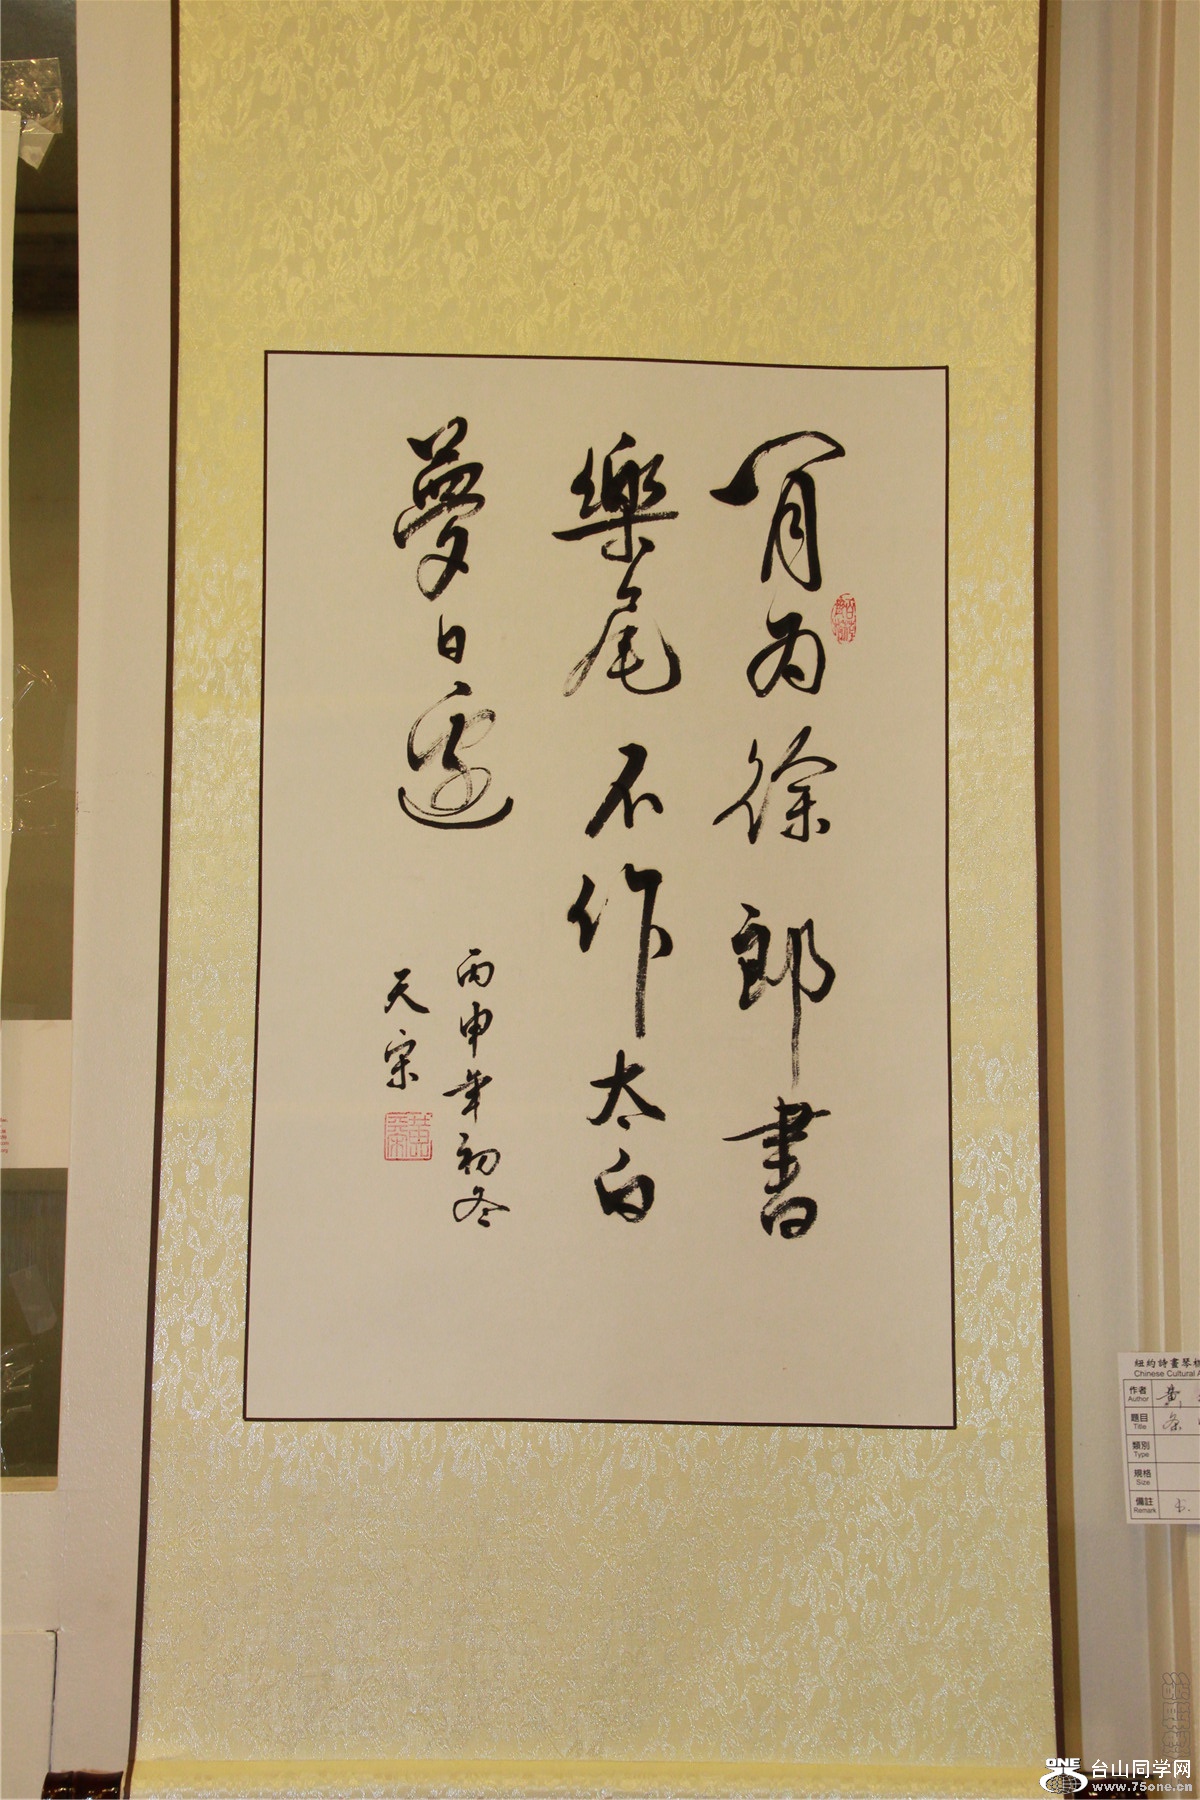 閒为徐郎書
樂尾不作太白
夢日邊
丙申年初冬
天宗
紐約詩畫琴
Chinese Cultural A
作者 黄
Author
題目 条
Title
類別
Type
規格
Size
備註
Remark
ONE 台山同学网
www.75one.cn